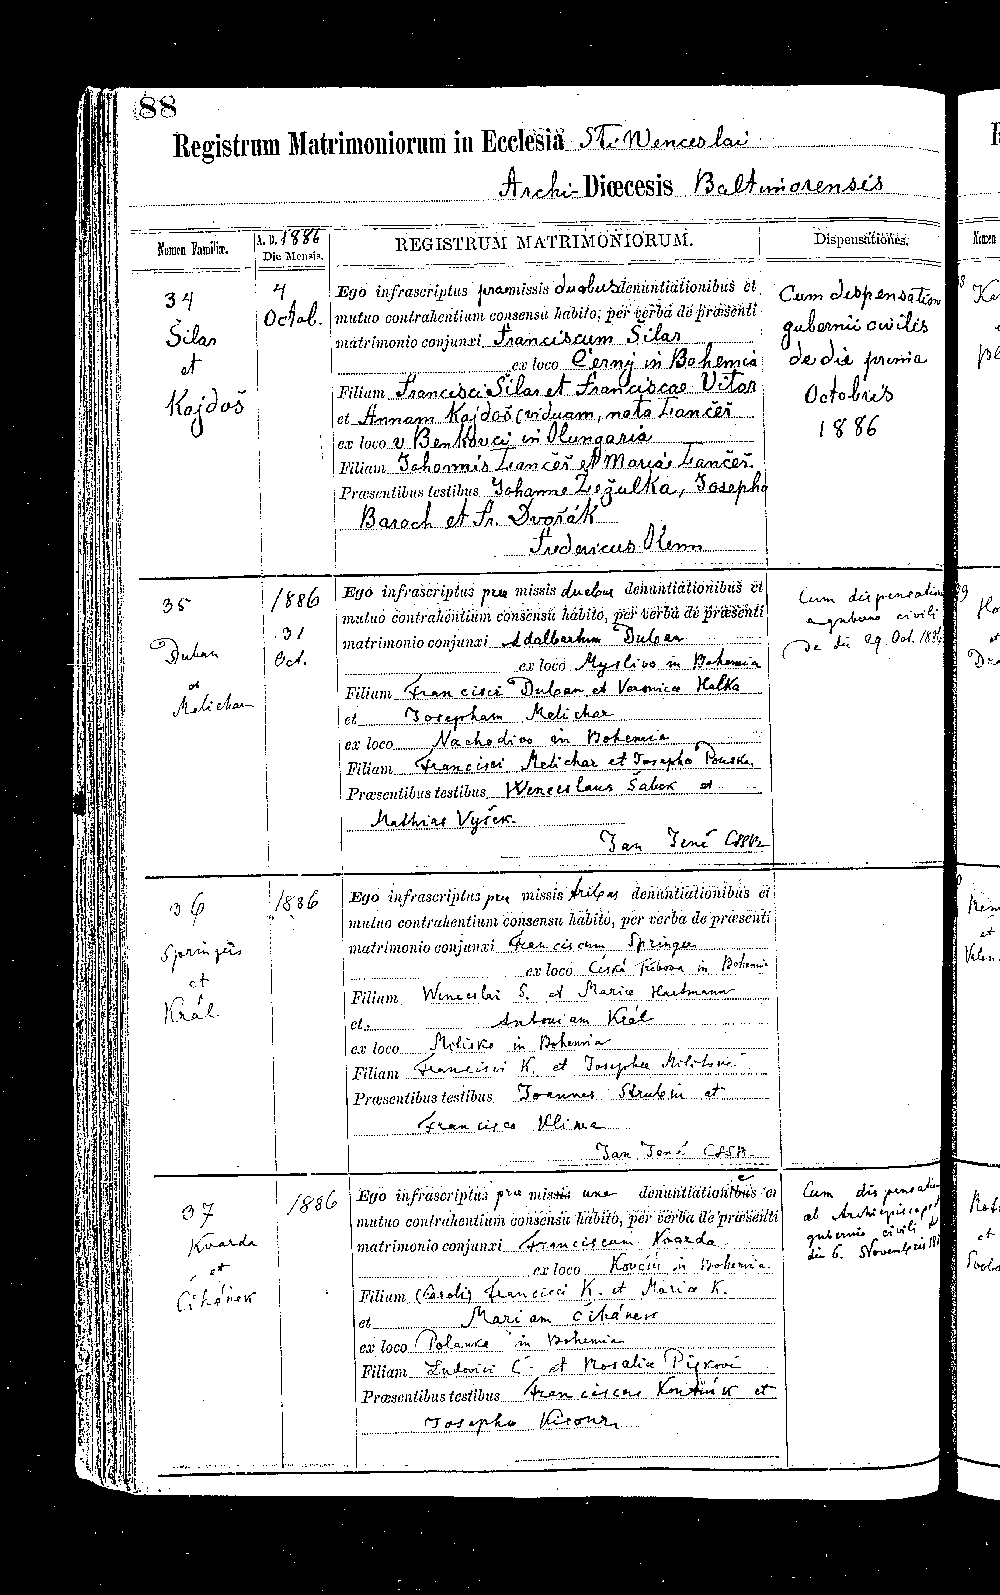 88
Registrum Matrimoniorum in Ecclesiâ Sti. Wenceslai
Archi-Diœcesis Baltimorensis
Nomen Familiæ.
A. D. 1886
Die Mensis.
REGISTRUM MATRIMONIORUM.
Dispensationes.
34
Šilar
et
Kajdoš
4
Octob.
Ego infrascriptus præmissis duobus denuntiationibus et
mutuo contrahentium consensu habito, per verba de præsenti
matrimonio conjunxi Franciscum Šilar
ex loco Černý in Bohemia
Filium Francisci Šilar et Franciscae Vitar
et Annam Kajdoš (viduam, nata Lančeš
ex loco v Benkovci in Hungaria
Filiam Johannis Lančeš et Mariæ Lančeš
Præsentibus testibus Johanne Zezulka, Josepho
Baroch et Fr. Dvořák
Fredericus
Cum dispensation
gubernii civilis
de die prima
Octobris
1886
35
Duban
et
Melichar
1886
31
Oct.
Ego infrascriptus præ missis duabus denuntiationibus et
mutuo contrahentium consensu habito, per verba de præsenti
matrimonio conjunxi Adalbertum Duban
ex loco Myslivo in Bohemia
Filium Francisci Duban et Veronica Halka
et Josepham Melichar
ex loco Nachodivo in Bohemia
Filiam Francisci Melichar et Josepha Pouska
Præsentibus testibus Wenceslaus Šabek et
Mathias Vyšek
Jan Jené CSSR
Cum dispensation
a guberno civili
De die 29. Oct. 188
36
Springer
et
Král
1886
Ego infrascriptus præ missis tribus denuntiationibus et
mutuo contrahentium consensu habito, per verba de præsenti
matrimonio conjunxi Franciscum Springer
ex loco Česká Třebova in Bohemia
Filium Wenceslai S. et Maria Hartmann
et Antoniam Král
ex loco in Bohemia
Filiam Francisci K. et Josepha
Præsentibus testibus Joannes et
Francisco Klima
Jan Jené CSSR
37
Kvarda
et
Cihánek
1886
Ego infrascriptus præ missis una denuntiationibus et
mutuo contrahentium consensu habito, per verba de præsenti
matrimonio conjunxi Franciscum Kvarda
ex loco Kovčín in Bohemia
Filium (Caroli) Francisci K. et Maria K.
et Mariam Cihánek
ex loco Polanka in Bohemia
Filiam Ludovici C. et Rosalia
Præsentibus testibus Franciscus et
Josepho
Cum dispensation
ab Archiepiscopo
gubernio civili
die 6. Novembris 18